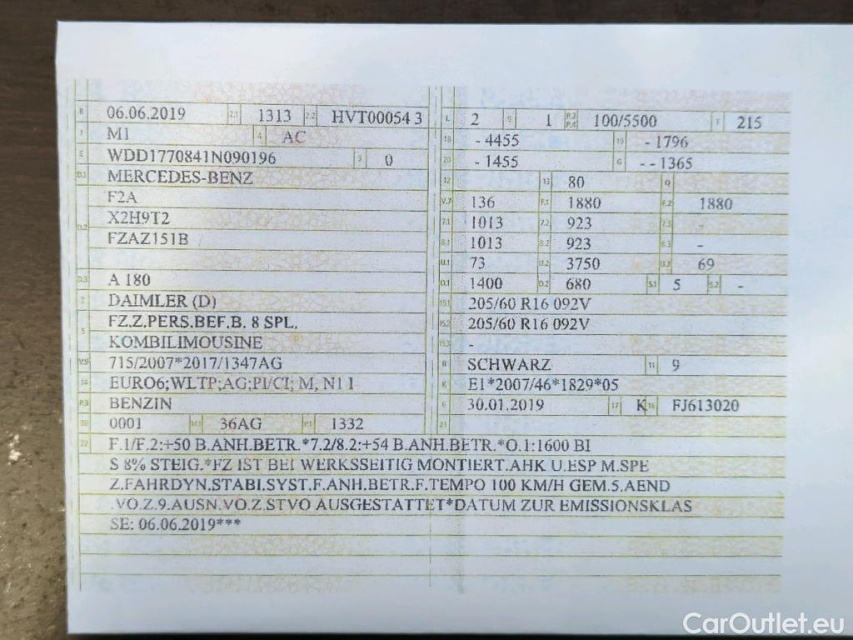 B 06.06.2019 2.1 1313 2.2 HVT00054 3
J M1 4 AC
E WDD1770841N090196 3 0
D.1 MERCEDES-BENZ
F2A
D.2 X2H9T2
FZAZ151B
D.3 A 180
2 DAIMLER (D)
5 FZ.Z.PERS.BEF.B. 8 SPL.
KOMBILIMOUSINE
V.9 715/2007*2017/1347AG
14 EURO6;WLTP;AG;PI/CI; M, N1 I
P.3 BENZIN
10 0001 14.1 36AG P.1 1332
22 F.1/F.2:+50 B.ANH.BETR.*7.2/8.2:+54 B.ANH.BETR.*O.1:1600 BI
S 8% STEIG.*FZ IST BEI WERKSSEITIG MONTIERT.AHK U.ESP M.SPE
Z.FAHRDYN.STABI.SYST.F.ANH.BETR.F.TEMPO 100 KM/H GEM.5.AEND
.VO.Z.9.AUSN.VO.Z.STVO AUSGESTATTET*DATUM ZUR EMISSIONSKLAS
SE: 06.06.2019***
L 2 9 1 P.2 P.4 100/5500 T 215
18 - 4455 19 - 1796
20 - 1455 G - - 1365
12 13 80 Q
V.7 136 F.1 1880 F.2 1880
7.1 1013 7.2 923 7.3 -
8.1 1013 8.2 923 8.3 -
U.1 73 U.2 3750 U.3 69
O.1 1400 O.2 680 S.1 5 S.2 -
15.1 205/60 R16 092V
15.2 205/60 R16 092V
15.3 -
R SCHWARZ 11 9
K E1*2007/46*1829*05
6 30.01.2019 17 K 16 FJ613020
21
CarOutlet.eu